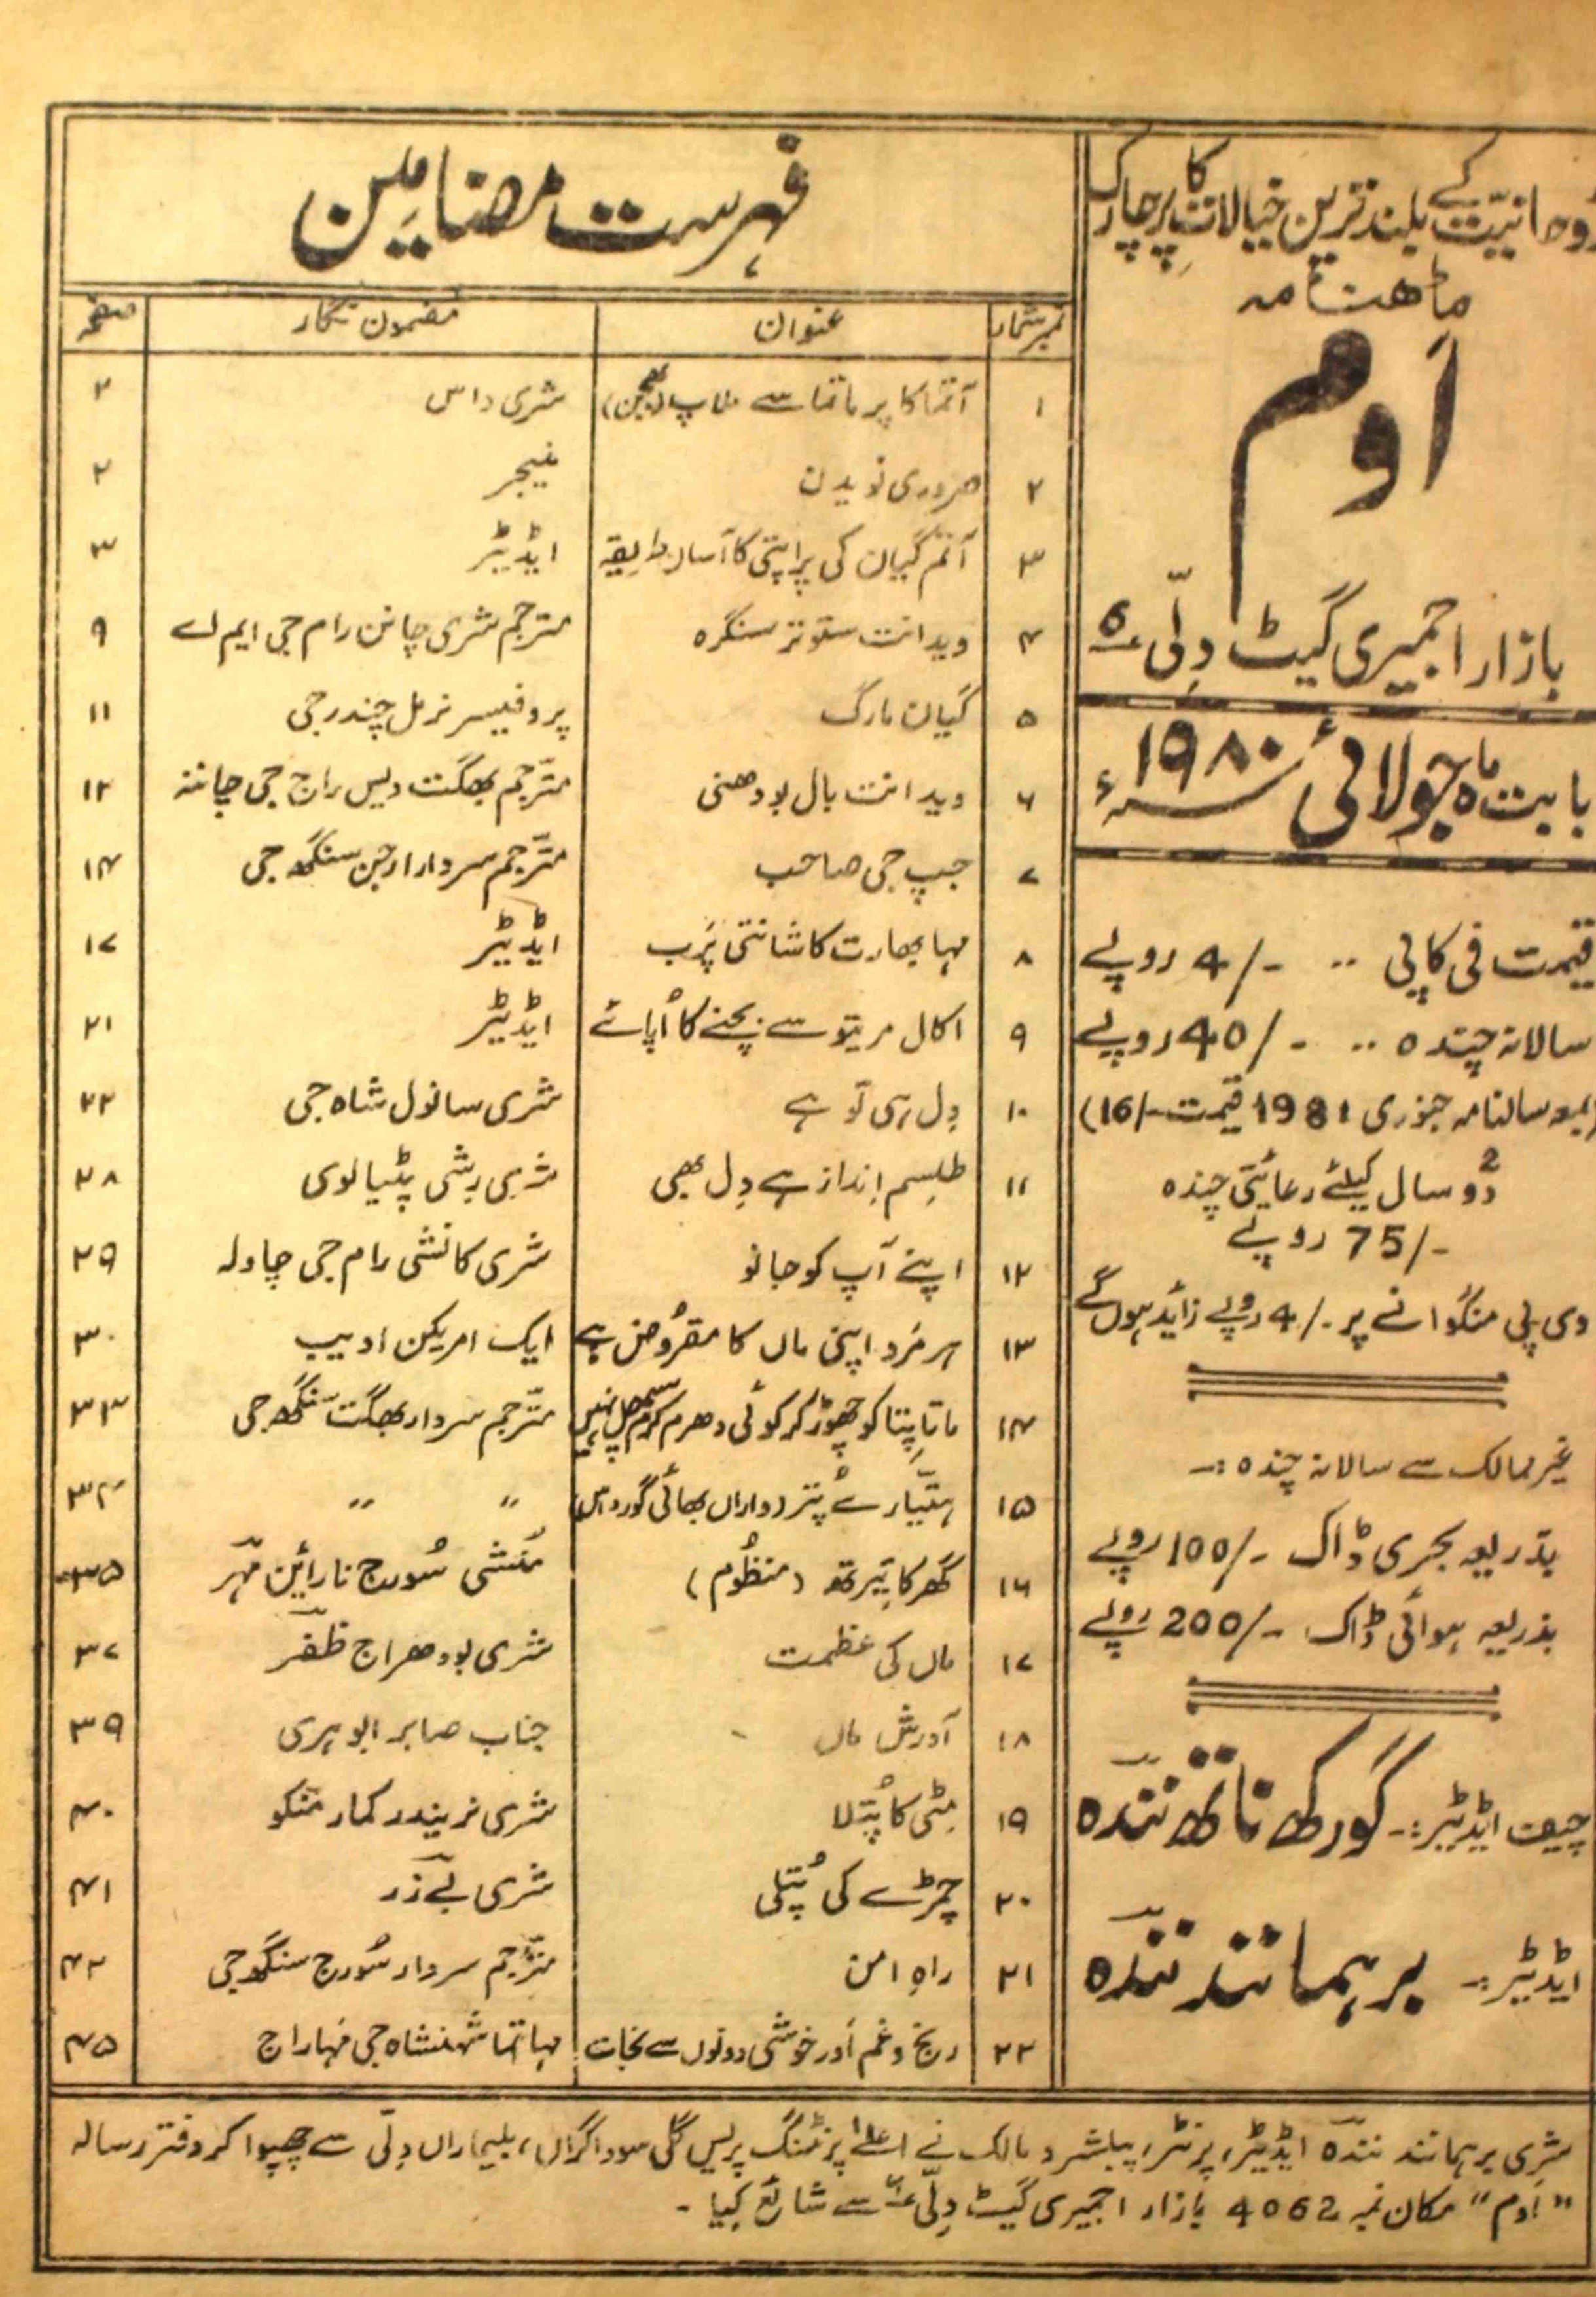 رُوحانیّت کے بلند ترین خیالات کا پرچارک
ماھنامہ
اَوم
بازار اجمیری گیٹ دِلّی ۶
بابت ماہ جولائی ۱۹۸۰ء
قیمت فی کاپی .. -/4 روپے
سالانہ چندہ .. -/40 روپے
(بمعہ سالنامہ جنوری 1981 قیمت -/16)
دُو سال کیلئے رعائیتی چندہ
-/75 روپے
وی پی منگوانے پر -/4 روپے زائد ہوں گے
غیر ممالک سے سالانہ چندہ :۔
بذریعہ بحری ڈاک -/100 روپے
بذریعہ ہوائی ڈاک -/200 روپے
چیف ایڈیٹر :۔ گورکھ ناتھ نندہ
ایڈیٹر :۔ برہمانند نندہ
فہرست مضامین
نمبر شمار عنوان مضمون نگار صفحہ
۱ آتما کا پرماتما سے ملاپ (بھجن) شری داس ۲
۲ ضروری نویدن منیجر ۲
۳ آتم گیان کی پراپتی کا آسان طریقہ ایڈیٹر ۳
۴ ویدانت ستوتر سنگرہ مترجم شری چانن رام جی ایم اے ۹
۵ گیان مارگ پروفیسر نرمل چندر جی ۱۱
۶ ویدانت بال بودھنی مترجم بھگت دیس راج جی چاننہ ۱۲
۷ جپ جی صاحب مترجم سردار ارجن سنگھ جی ۱۴
۸ مہا بھارت کا شانتی پَرب ایڈیٹر ۱۷
۹ اکال مریتو سے بچنے کا اُپائے ایڈیٹر ۲۱
۱۰ دِل ہی تو ہے شری سانول شاہ جی ۲۲
۱۱ طلِسم اِنداز ہے دِل بھی شری رشی پٹیالوی ۲۸
۱۲ اپنے آپ کو جانو شری کانشی رام جی چاولہ ۲۹
۱۳ ہر مَرد اپنی ماں کا مقرُوض ہے ایک امریکن ادیب ۳۰
۱۴ ماتا پِتا کو چھوڑ کر کوئی دھرم کرم سپھل نہیں مترجم سردار بھگت سنگھ جی ۳۳
۱۵ ہتیّارے پُتر (واراں بھائی گورداس) " " " ۳۴
۱۶ گھر کا تیرتھ (منظُوم) مُنشی سُورج نارائین مہر ۳۵
۱۷ ماں کی عظمت شری بودھراج ظفر ۳۷
۱۸ آدرش ماں جناب صابر ابوہری ۳۹
۱۹ مِٹی کا پُتلا شری نریندر کمار منکو ۴۰
۲۰ چمڑے کی پُتلی شری بے زر ۴۱
۲۱ راہِ امن مترجم سردار سُورج سنگھ جی ۴۲
۲۲ رنج و غم اَور خوشی دونوں سے نجات مہاتما شہنشاہ جی مہاراج ۴۵
شری برہمانند نندہ ایڈیٹر، پرنٹر، پبلشر و مالک نے اعلےٰ پرنٹنگ پریس گلی سوداگراں، بلیماراں دِلّی سے چھپوا کر دفتر رسالہ
"اَوم" مکان نمبر 4062 بازار اجمیری گیٹ دِلّی ۶ سے شائع کِیا ۔